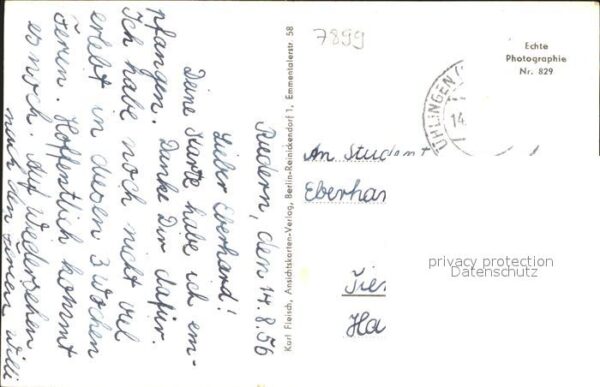 Riedern, den 14.8.56
Lieber Eberhard!
Deine Karte habe ich em-
pfangen. Danke Dir dafür.
Ich habe noch nicht viel
erlebt in diesen 3 Wochen
Ferien. Hoffentlich kommt
es noch. Auf Wiedersehen
nach den Ferien Willi
Karl Fleisch, Ansichtskarten-Verlag, Berlin-Reinickendorf 1, Emmentalerstr 58
7899
Echte
Photographie
Nr. 829
ÜHLINGEN
14.
An Student
Eberhar
Tie
Ha
privacy protection
Datenschutz